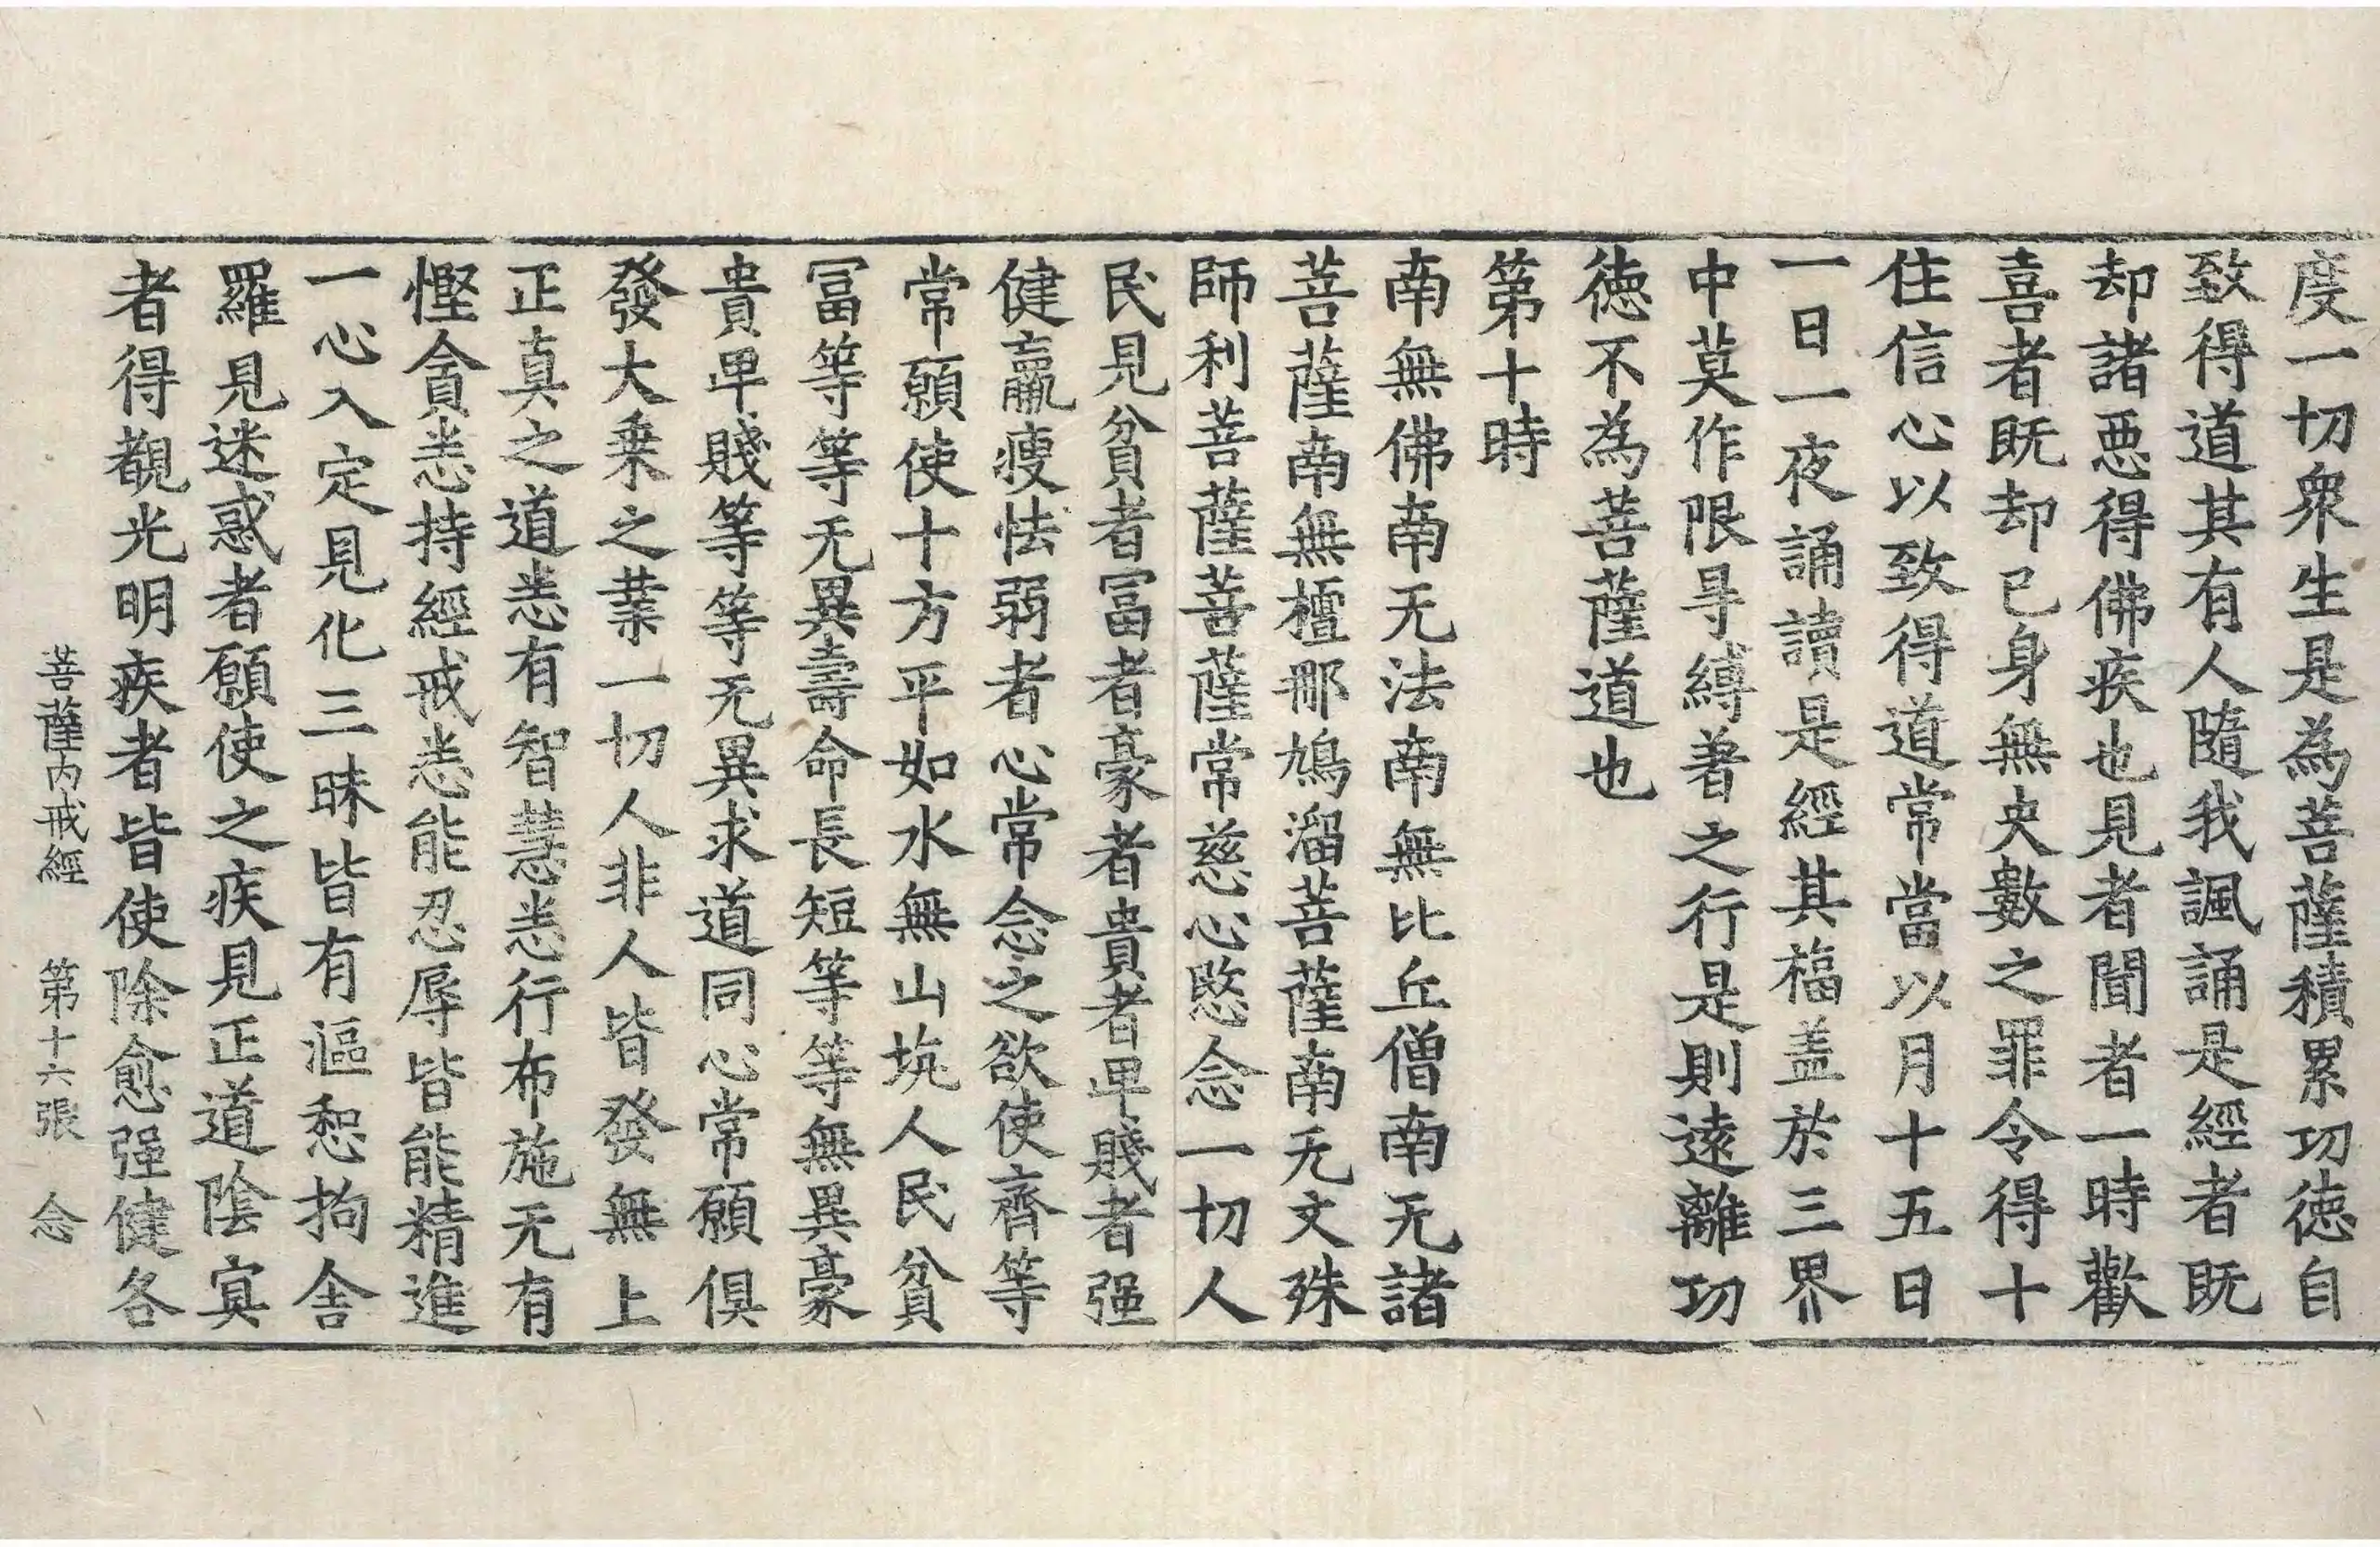 度一切衆生是為菩薩積累功徳自
致得道其有人隨我諷誦是經者既
却諸惡得佛疾也見者聞者一時歡
喜者既却已身無央數之罪令得十
住信心以致得道常當以月十五日
一日一夜誦讀是經其福盖於三界
中莫作限㝵縛著之行是則逺離功
徳不為菩薩道也
第十時
南無佛南无法南無比丘僧南无諸
菩薩南無檀那鳩溜菩薩南无文殊
師利菩薩菩薩常慈心愍念一切人
民見貧者冨者豪者貴者卑賤者强
健羸瘦怯弱者心常念之欲使齊等
常願使十方平如水無山坑人民貧
冨等等无異壽命長短等等無異豪
貴卑賤等等无異求道同心常願俱
發大乗之業一切人非人皆發無上
正真之道悉有智慧悉行布施无有
慳貪悉持經戒悉能忍辱皆能精進
一心入定見化三昧皆有漚惒拘舍
羅見迷惑者願使之疾見正道陰㝠
者得覩光明疾者皆使除愈强健各
菩薩内戒經 第十六張 念